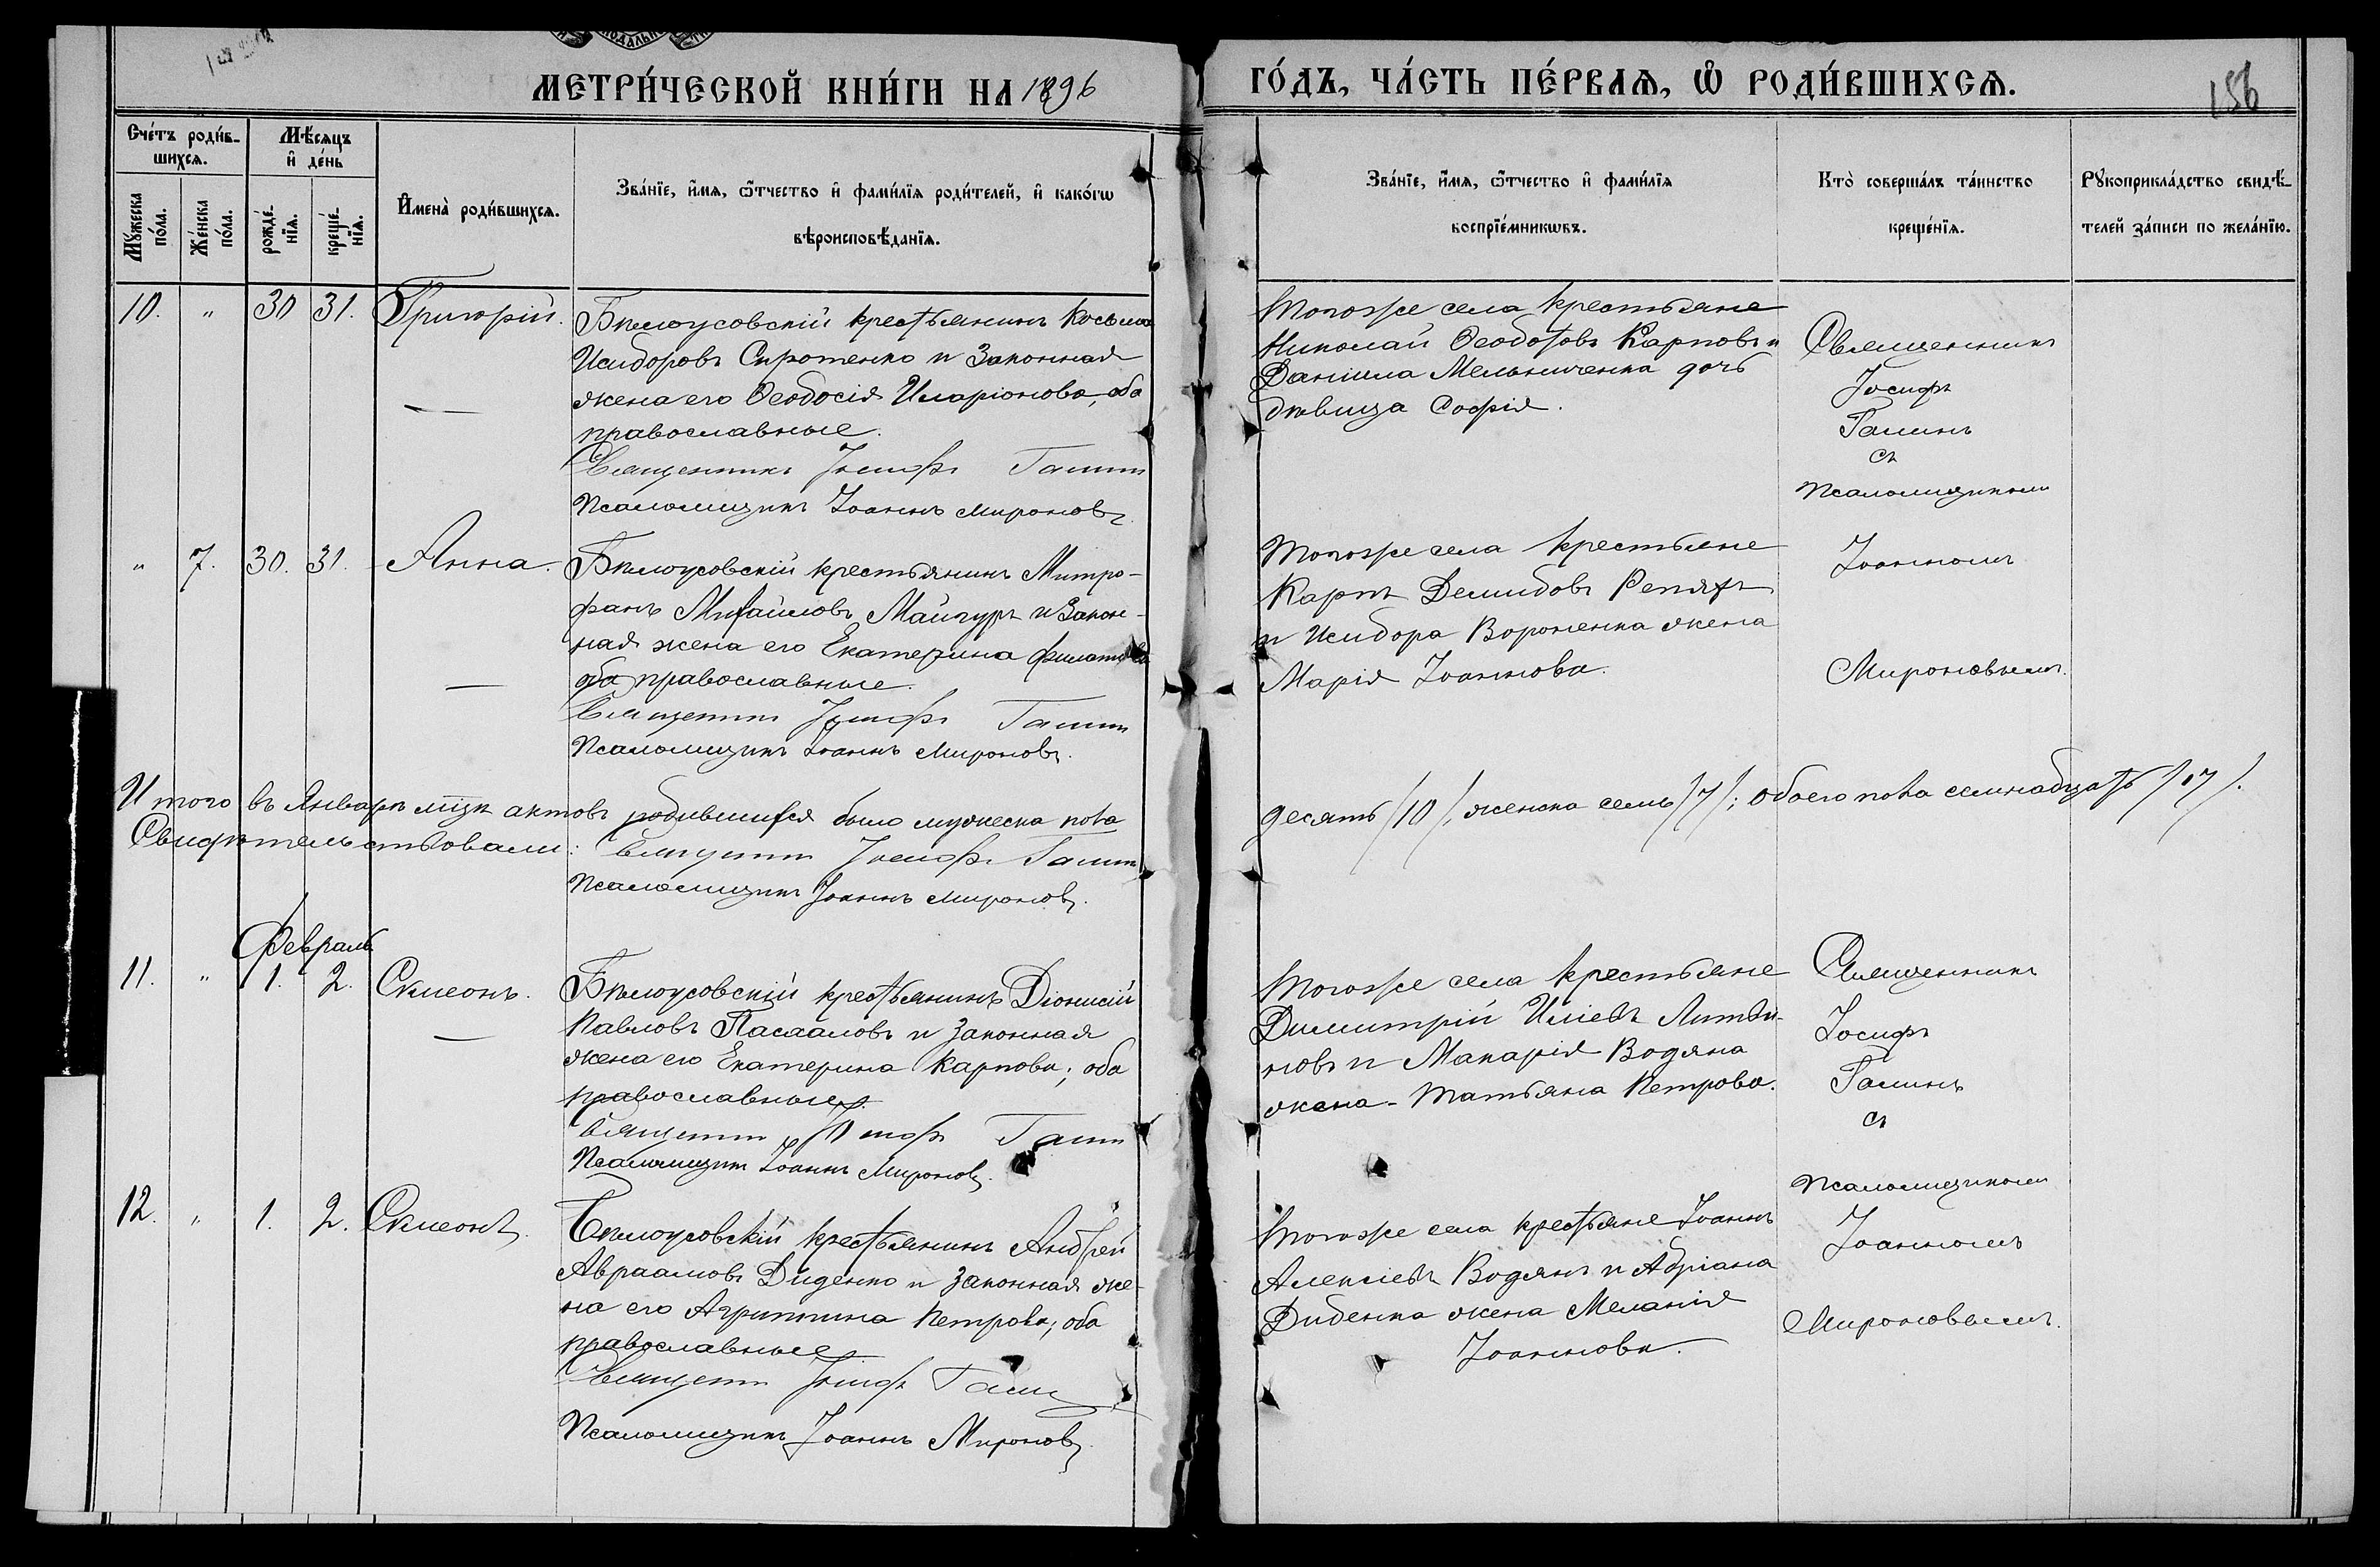 МЕТРИ́ЧЕСКОЙ КНИ́ГИ НА 1896 ГО́ДЪ, ЧА́СТЬ ПЕ́РВАѦ, Ѿ РОДИ́ВШИХСѦ.
156
Сче́тъ роди́в-
шихсѧ.
Мѣ́сѧцъ
и҆ де́нь
Мꙋ́жеска
по́ла.
Же́нска
по́ла.
рожде́-
нїѧ.
креще́-
нїѧ.
И҆мена̀ роди́вшихсѧ.
Зва́нїе, и҆́мѧ, ѻ҆́тчество и҆ фами́лїѧ роди́телей, и҆ како́гѡ
вѣроисповѣ́данїѧ.
Зва́нїе, и҆́мѧ, ѻ҆́тчество и҆ фами́лїѧ
воспрїе́мникѡвъ.
Кто̀ соверша́лъ та́инство
креще́нїѧ.
Рꙋкоприкла́дство свидѣ́-
телей за́писи по жела́нїю.
10. " 30 31. Григорій.
Бѣлоусовскій крестьянинъ Косьма
Исидоровъ Сиротенко и законная
жена его Ѳеодосія Иларіонова, оба
православные.
Священникъ Іосифъ Галинъ
Псаломщикъ Іоаннъ Мироновъ.
Тогоже села крестьяне
Николай Ѳеодотовъ Карповъ и
Даніила Мельниченка дочь
дѣвица Софія.
Священникъ
Іосифъ
Галинъ
съ
псаломщикомъ
" 7. 30. 31. Анна.
Бѣлоусовскій крестьянинъ Митро-
фанъ Михайловъ Майгуръ и закон-
ная жена его Екатерина Филатова
оба православные.
Священникъ Іосифъ Галинъ
Псаломщикъ Іоаннъ Мироновъ.
Тогоже села крестьяне
Карпъ Демидовъ Репяхъ
и Исидора Вороненка жена
Марія Іоаннова.
Іоанномъ
Мироновымъ.
Итого въ Январѣ мцѣ актовъ родившихся было мужеска пола десять /10/, женска семь /7/; обоего пола семнадцать /17/.
Свидѣтельствовали: Священникъ Іосифъ Галинъ
Псаломщикъ Іоаннъ Мироновъ.
Февраль
11. " 1. 2. Симеонъ.
Бѣлоусовскій крестьянинъ Діонисій
Павловъ Пасхаловъ и законная
жена его Екатерина Карпова; оба
православные.
Священникъ Іосифъ Галинъ
Псаломщикъ Іоаннъ Мироновъ.
Тогоже села крестьяне
Димитрій Иліевъ Литви-
новъ и Макарія Водяна
жена - Татьяна Петрова.
Священникъ
Іосифъ
Галинъ
съ
псаломщикомъ
12. " 1. 2. Симеонъ.
Бѣлоусовскій крестьянинъ Андрей
Авраамовъ Диденко и законная же-
на его Агриппина Петрова; оба
православные
Священникъ Іосифъ Галинъ
Псаломщикъ Іоаннъ Мироновъ.
Тогоже села крестьяне Іоаннъ
Алексіевъ Водянъ и Адріана
Диденка жена Меланія
Іоаннова.
Іоанномъ
Мироновымъ.